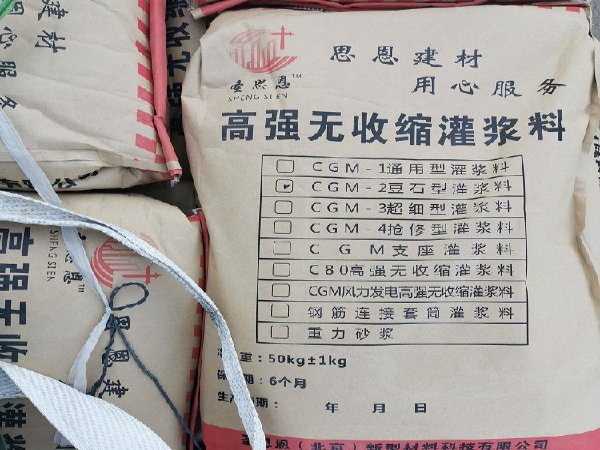 思恩建材
用心服务
圣思恩™
SHENG SI EN
高强无收缩灌浆料
CGM-1通用型灌浆料
CGM-2豆石型灌浆料
CGM-3超细型灌浆料
CGM-4抢修型灌浆料
CGM支座灌浆料
C80高强无收缩灌浆料
CGM风力发电高强无收缩灌浆料
钢筋连接套筒灌浆料
重力砂浆
重：50kg±1kg
期：6个月
生产日期： 年 月 日
思恩（北京）新型材料科技有限公司
建材
心服务
思恩™
SHENG SI EN
思恩建
高强无收
灌浆